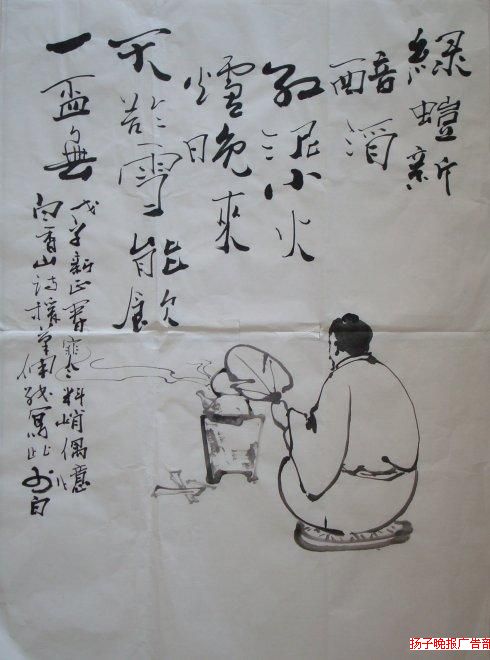 綠螘新
醅酒
紅泥小火
爐晚來
天欲雪能飲
一盃無
戊子新正寒料峭偶憶
白香山詩寫此
扬子晚报广告部